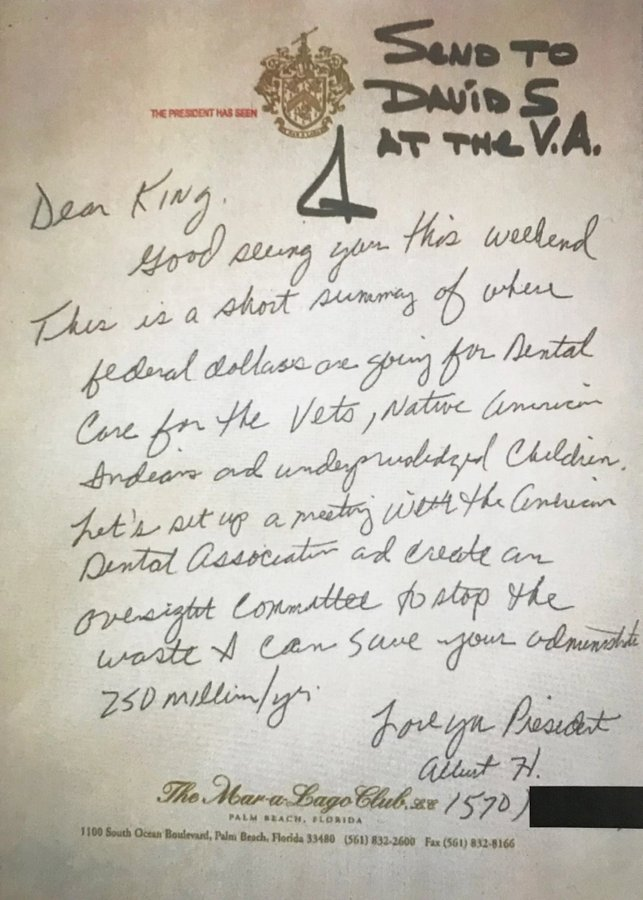 SEND TO
DAVID S
AT THE V.A.
THE PRESIDENT HAS SEEN
Dear King.
Good seeing you this weekend
This is a short summary of where
federal dollars are going for Dental
Care for the Vets, Native American
Indians and underpriviledged Children.
Let's set up a meeting with the American
Dental Association and create an
oversight committee to stop the
waste & I can save your administrate
250 million/yr.
Love ya President
Albert H.
The Mar-a-Lago Club, L.C.
1570
PALM BEACH, FLORIDA
1100 South Ocean Boulevard, Palm Beach, Florida 33480 (561) 832-2600 Fax (561) 832-8166